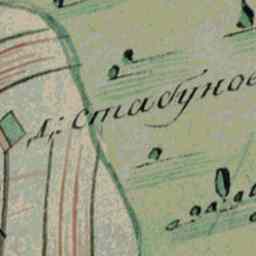 д: Стабуное